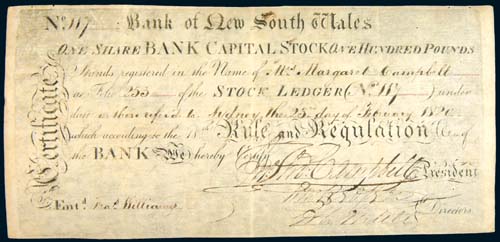 No. 117 Bank of New South Wales
ONE SHARE BANK CAPITAL STOCK ONE HUNDRED POUNDS
Stands registered in the Name of Mrs. Margaret Campbell
as Folio 253 of the STOCK LEDGER (No. 117) under
date is thereof refd. to Sydney, the 25th day of February 1820
which according to the 18th Rule and Regulation of
the BANK We hereby Certify
Certificate
President
Entd. Williams
Directors